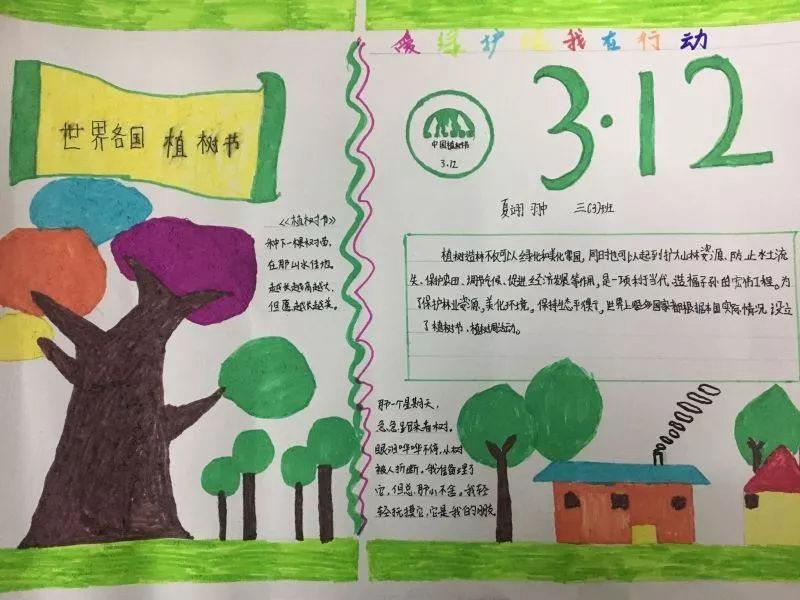 爱绿护绿我在行动
世界各国植树节
3·12
中国植树节
3.12
三(3)班
《植树节》
种下一棵树苗,
在那山水佳地。
越长越高越大,
但愿越长越美。
植树造林不仅可以绿化和美化家园,同时也可以起到扩大山林资源、防止水土流
失、保护农田、调节气候、促进经济发展等作用,是一项利于当代、造福子孙的宏伟工程。为
了保护林业资源,美化环境,保持生态平衡,世界上很多国家都根据本国实际情况设立
了植树节、植树周活动。
那一个星期天,
急急回来看树。
眼泪哗哗不停,小树
被人折断。我准备埋了
它,但总那么不舍。我轻
轻抚摸它,它是我的朋友